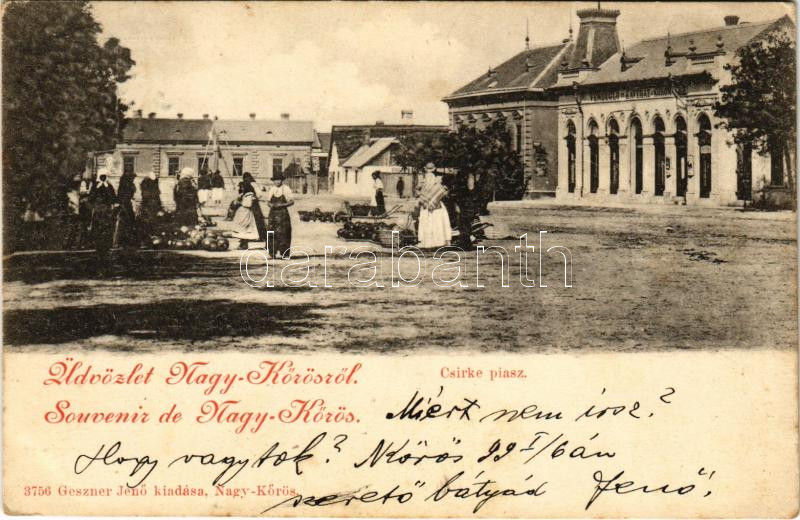 VENDÉGLŐ
darabanth
Üdvözlet Nagy-Kőrösről.
Csirke piasz.
Souvenir de Nagy-Kőrös.
Miért nem irsz?
Hogy vagytok? N Körös 99 I/6án
3756 Geszner Jenő kiadása, Nagy-Kőrös
szerető bátyád Jenő!